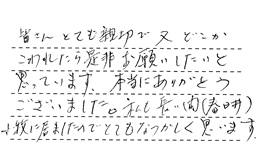 皆さんとても親切で又どこか
こわれたら是非お願いしたいと
思っています。本当にありがとう
ございました。私も長い間(春日井)
に居ましたのでとてもなつかしく思います